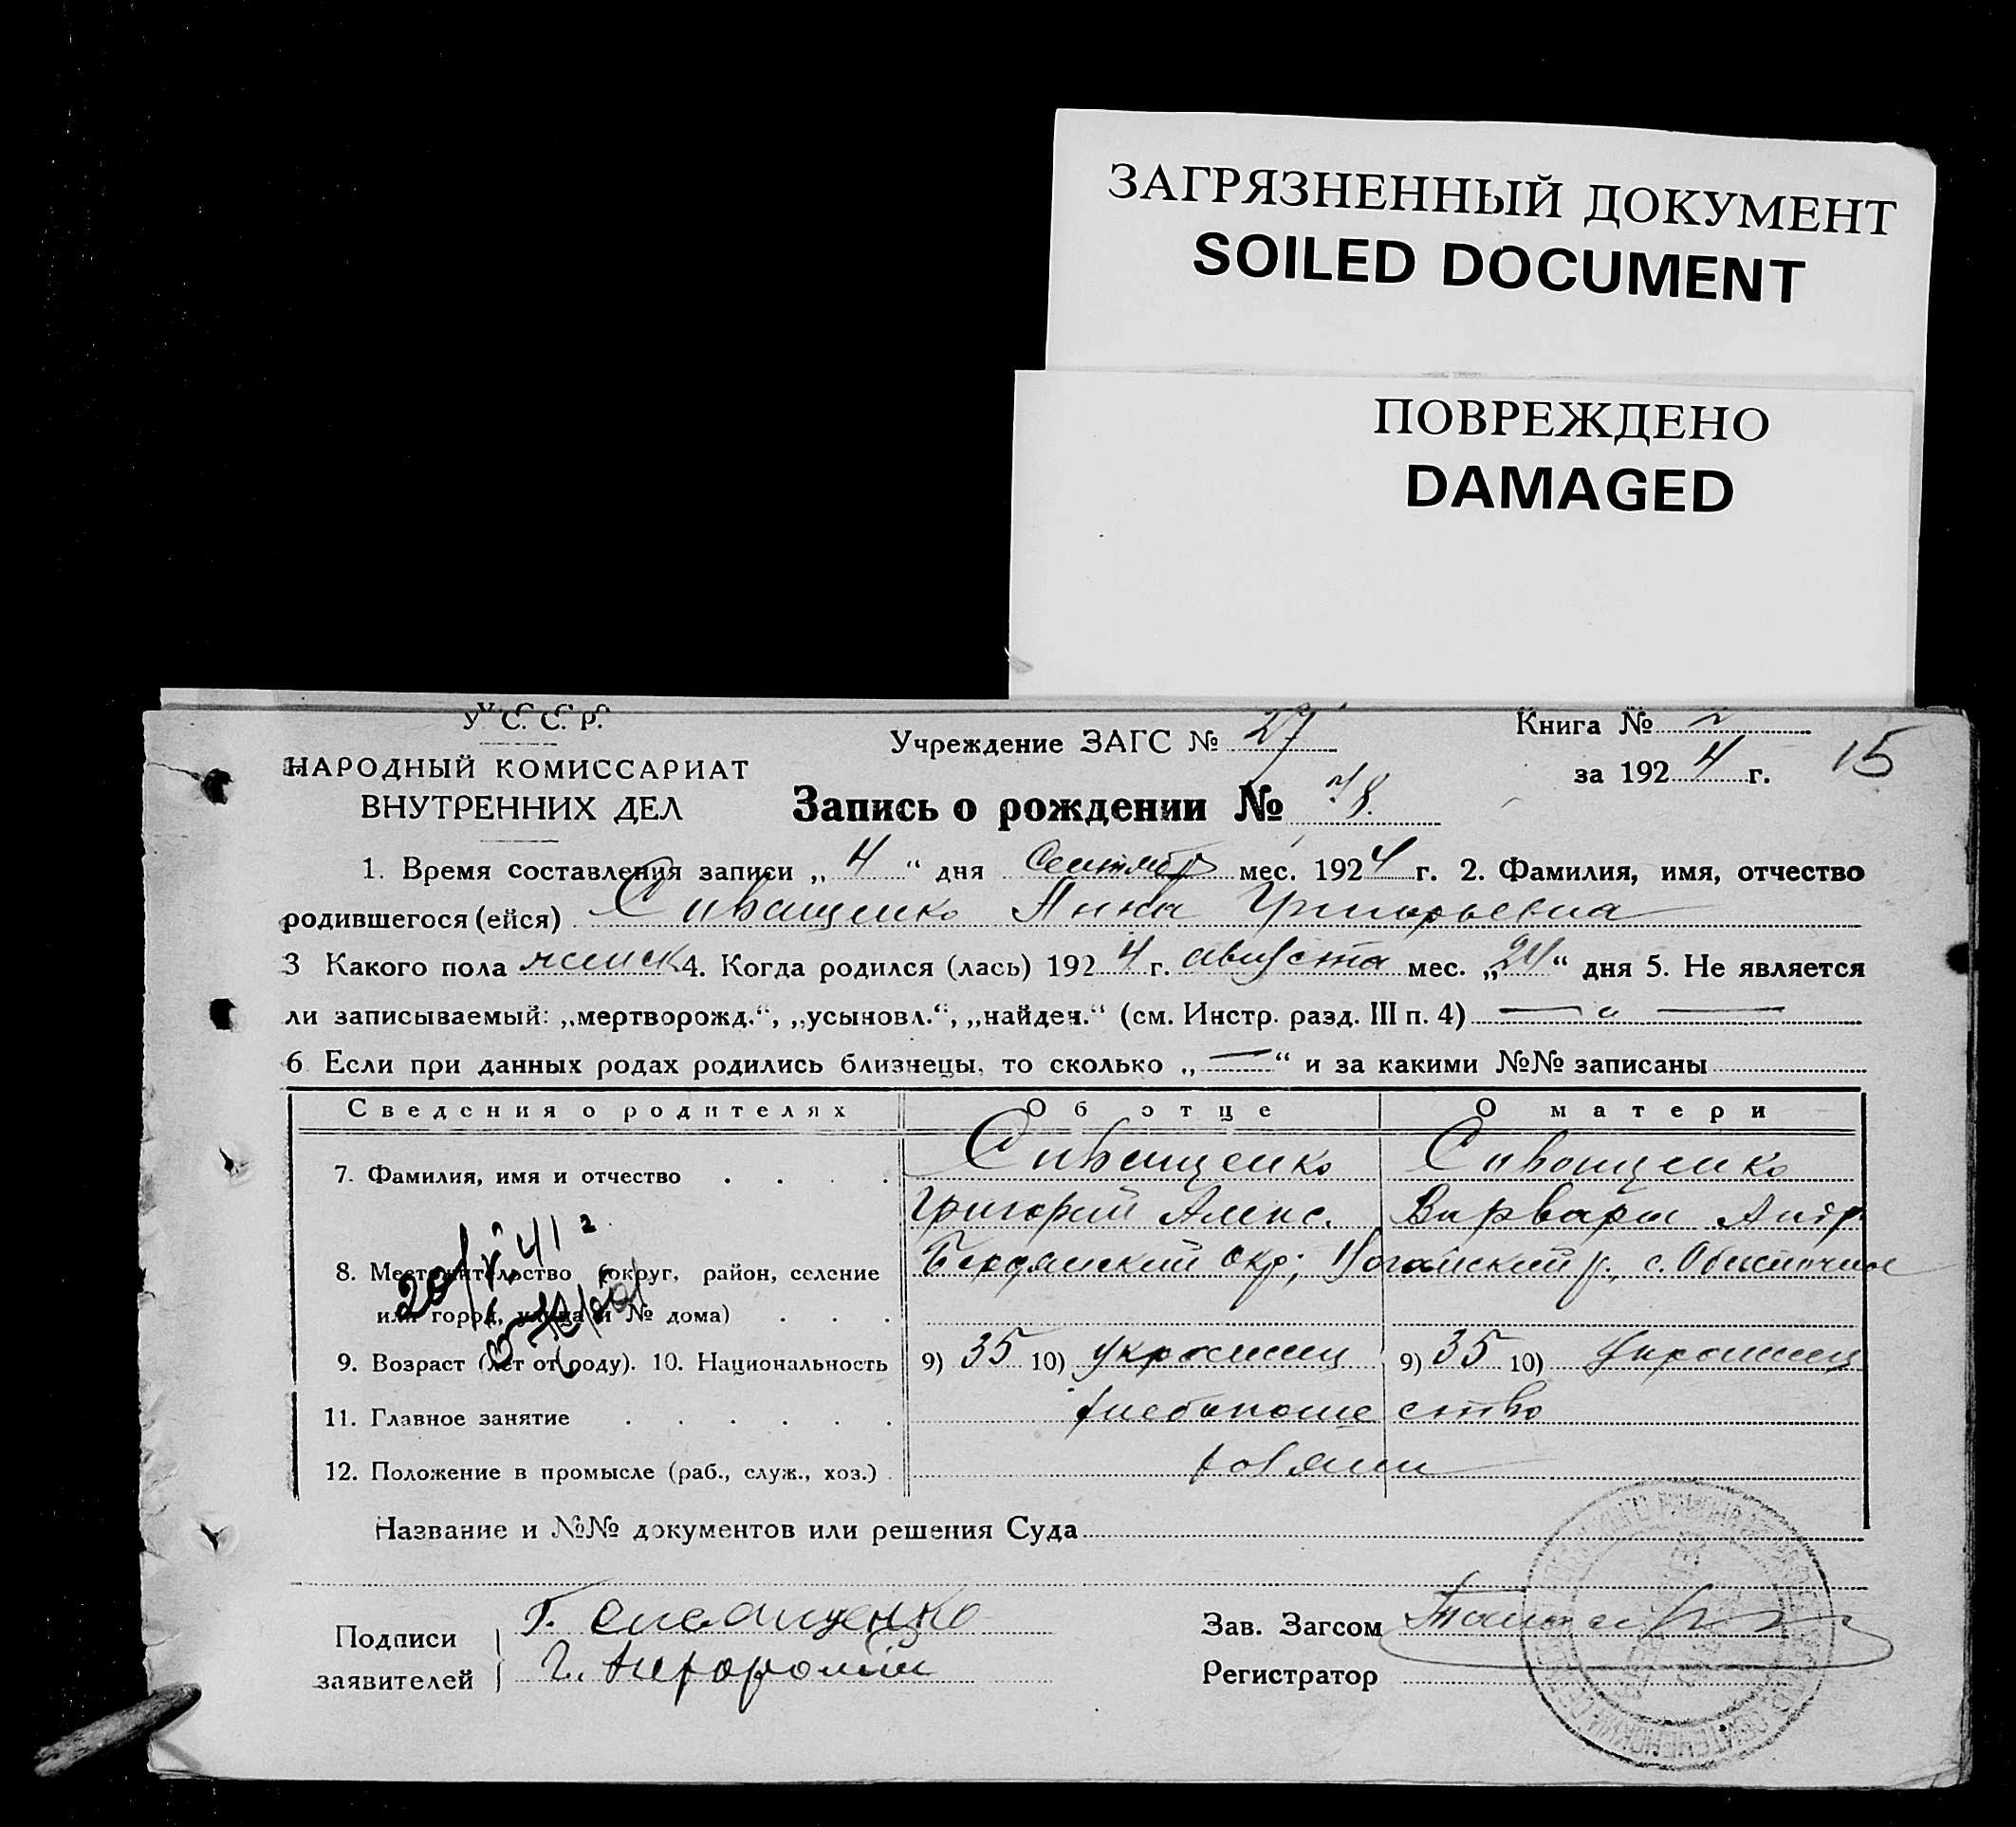 ЗАГРЯЗНЕННЫЙ ДОКУМЕНТ
SOILED DOCUMENT
ПОВРЕЖДЕНО
DAMAGED
У. С. С. Р.
НАРОДНЫЙ КОМИССАРИАТ
ВНУТРЕННИХ ДЕЛ
Учреждение ЗАГС № 27
Книга № 2
за 1924 г. 15
Запись о рождении № 78.
1. Время составления записи „ 4 “ дня Сентября мес. 1924 г. 2. Фамилия, имя, отчество
родившегося (ейся) Сиващенко Анна Григорьевна
3 Какого пола женск 4. Когда родился (лась) 1924 г. августа мес. „24“ дня 5. Не является
ли записываемый: „мертворожд.“, „усыновл.“, „найден.“ (см. Инстр. разд. III п. 4) — „ —
6 Если при данных родах родились близнецы, то сколько „—“ и за какими №№ записаны
Сведения о родителях Об отце О матери
7. Фамилия, имя и отчество Сиващенко Сиващенко
Григорий Алекс. Варвара Андр
8. Местожительство (округ, район, селение Бердянский окр; Ногайский р., с. Обиточное
или город, улица и № дома)
20/V 41 г
9. Возраст (лет от роду). 10. Национальность 9) 35 10) украинец 9) 35 10) украинец
11. Главное занятие хлебопашество
12. Положение в промысле (раб., служ., хоз.) хозяин
Название и №№ документов или решения Суда
Подписи
заявителей
Г. Сиващенко
Зав. Загсом
Регистратор